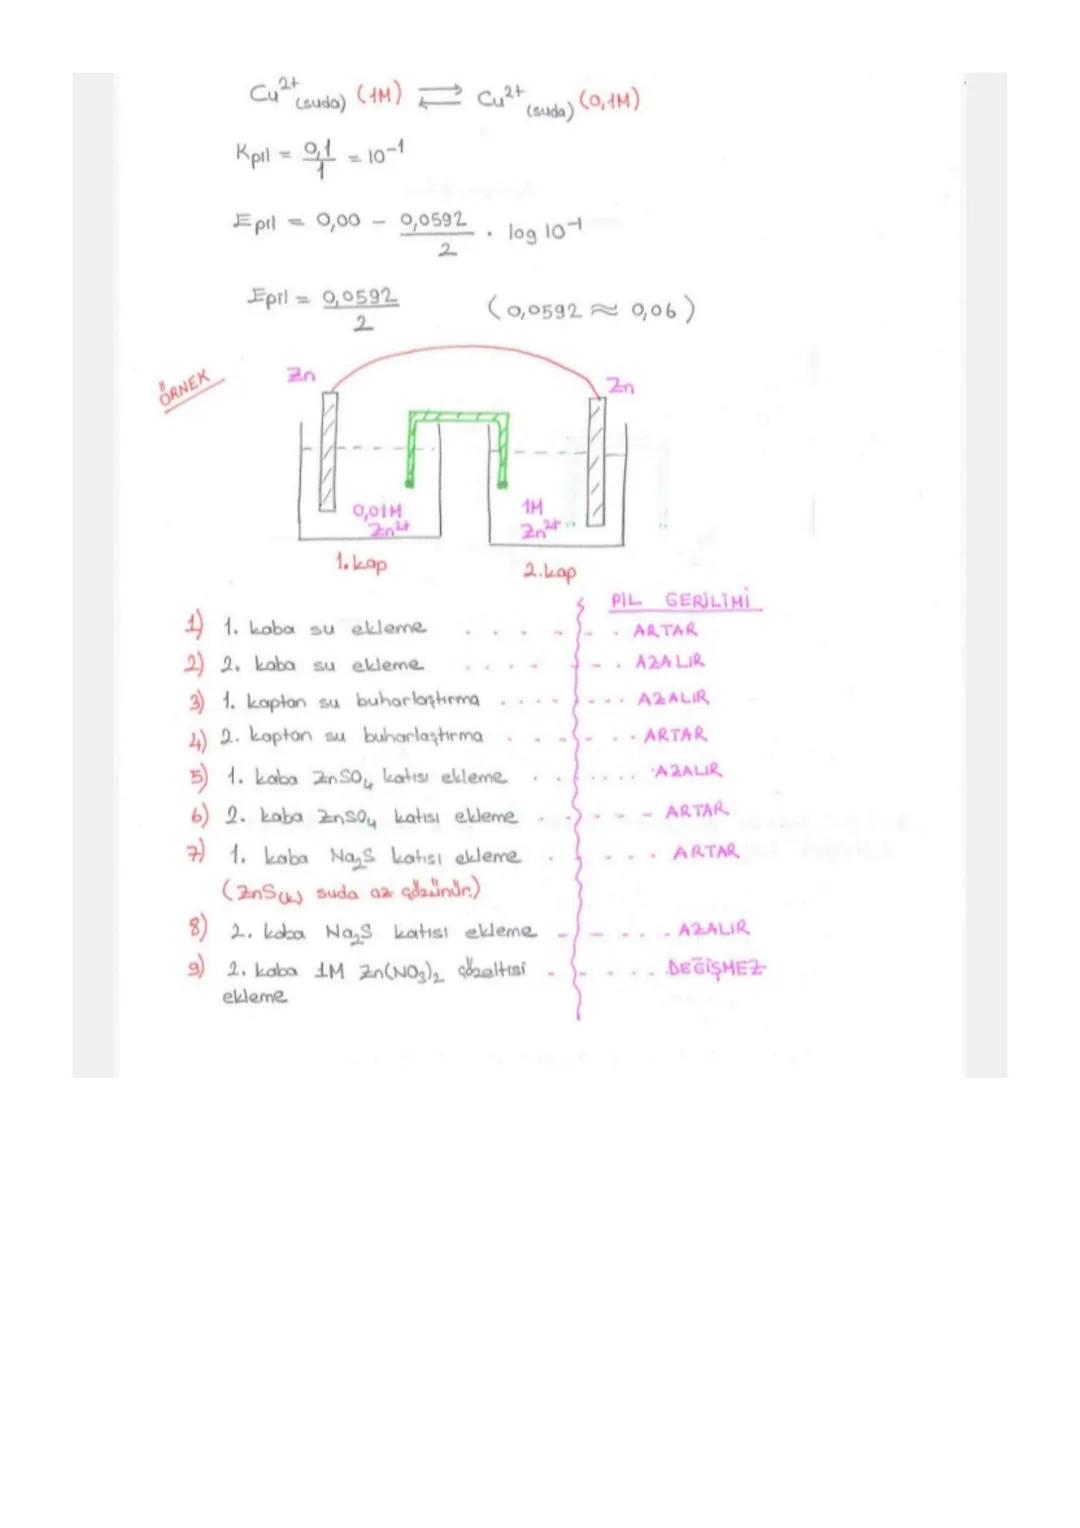 Cu²⁺(suda) (1M) ⇌ Cu²⁺(suda) (0,1M)
Kpil = 0,1/1 = 10⁻¹
Epil = 0,00 - 0,0592/2 . log 10⁻¹
Epil = 0,0592/2 (0,0592 ≈ 0,06)
ÖRNEK
Zn Zn
0,01M 1M
Zn²⁺ Zn²⁺
1. kap 2. kap
PİL GERİLİMİ
1) 1. kaba su ekleme ARTAR
2) 2. kaba su ekleme AZALIR
3) 1. kaptan su buharlaştırma AZALIR
4) 2. kaptan su buharlaştırma ARTAR
5) 1. kaba ZnSO₄ katısı ekleme AZALIR
6) 2. kaba ZnSO₄ katısı ekleme ARTAR
7) 1. kaba Na₂S katısı ekleme ARTAR
(ZnS(k) suda az çözünür.)
8) 2. kaba Na₂S katısı ekleme AZALIR
9) 2. kaba 1M Zn(NO₃)₂ çözeltisi DEĞİŞMEZ
ekleme